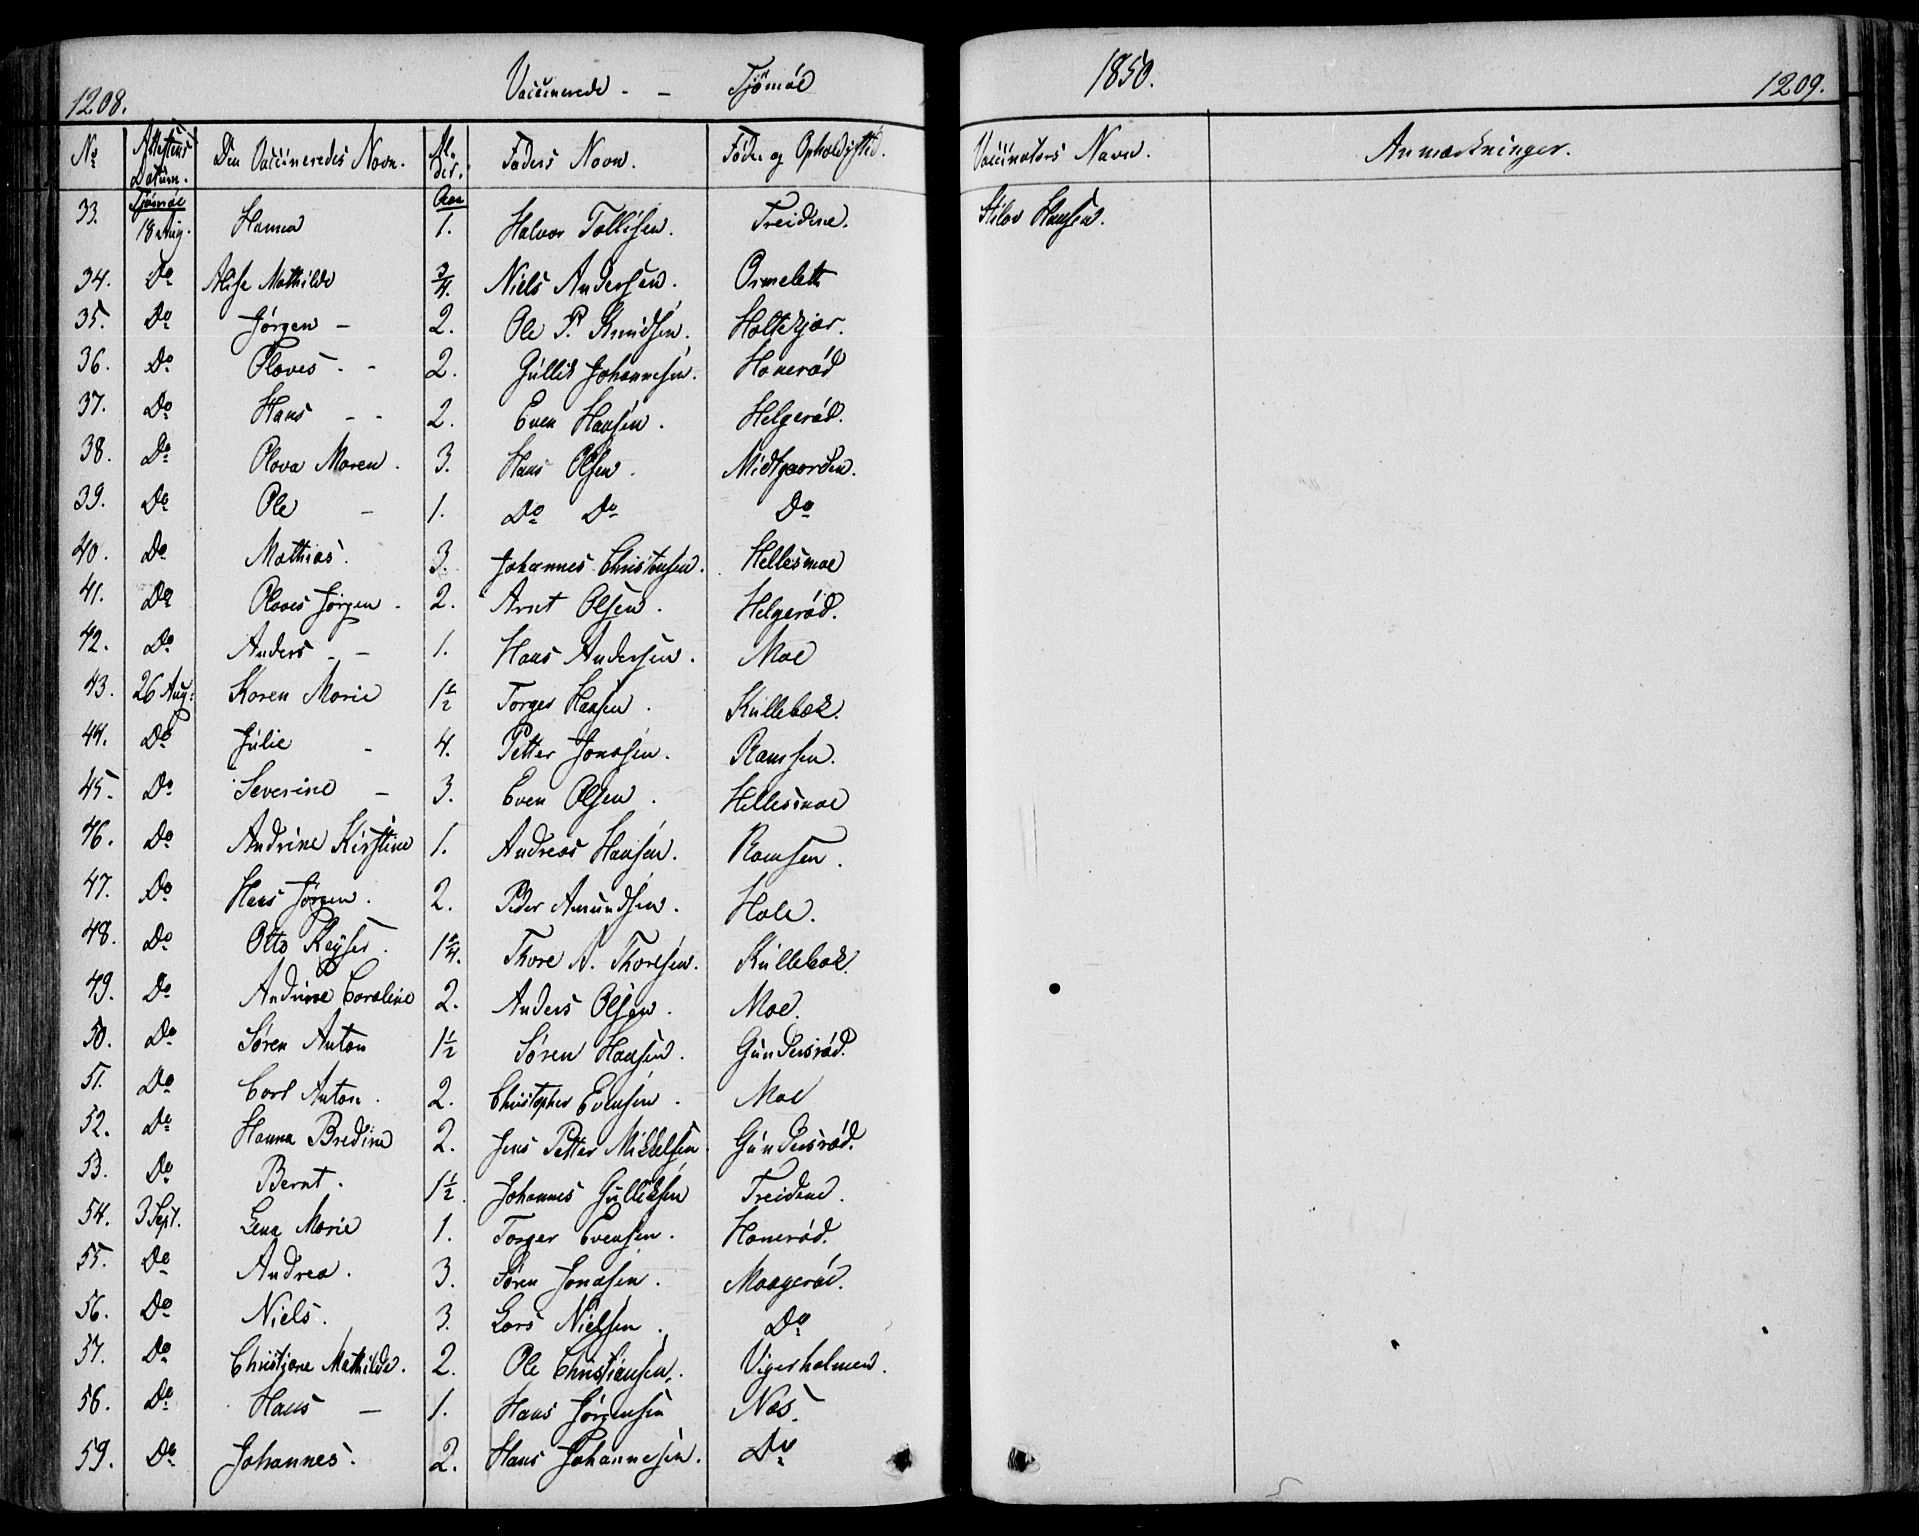 1208.
Vaccinerede - - Tjømøe
1850.
1209.
No Attestens Datum. Den Vaccineredes Navn. Al-der. Faders Navn. Føde og Opholdssted. Vaccinators Navn. Anmærkninger.
Tjømøe Aar
33. 18 Aug. Hanna 1. Halvor Tollefsen. Treidene. Hansen.
34. Do Mathilde 3/4. Niels Andersen. Ormelett
35. Do Jørgen - 2. Ole P. Knudsen. Holtekjær.
36. Do Olaves - - 2. Gullik Johannesen. Honerød
37. Do Hans - - 2. Even Hansen. Helgerød.
38. Do Olava Maren. 3. Hans Olsen. Midtgaarden.
39. Do Ole - 1. Do Do Do
40. Do Mathias. 3. Johannes Christensen. Hellesmoe
41. Do Olaves Jørgen - 2. Arnt Olsen. Helgerød.
42. Do Anders - - 1. Hans Andersen. Moe
43. 26 Aug: Karen Marie 1 1/2 Torger Hansen. Kullebæk.
44. Do Julie - 4. Petter Jonasen. Ramsen.
45. Do Severine - 3. Even Olsen. Hellesmoe
46. Do Andrine Kirstine 1. Andreas Hansen. Ramsen.
47. Do Hans Jørgen. 2. Peder Amundsen. Hole.
48. Do Otto Keyser. 1 1/4. Thore A. Thoresen. Kullebæk.
49. Do Andrine Caroline 2. Anders Olsen. Moe.
50. Do Søren Anton 1 1/2 Søren Hansen. Gundersrød.
51. Do Carl Anton. 2. Christopher Evensen. Moe
52. Do Hanna Bredine 2. Jens Petter Mikkelsen Gundersrød.
53. Do Bernt. 1 1/2. Johannes Gulliksen Treidene.
54. 3 Sept. Lena Marie 1. Torger Evensen. Honerød.
55. Do Andrea. 3. Søren Jonasen. Maagerøe.
56. Do Niels. 3. Lars Nielsen. Do
57. Do Christiane Mathilde. 2. Ole Christiansen. Vigerholmen.
56. Do Hans - 1. Hans Jørgensen Næs.
59. Do Johannes. 2. Hans Johannesen. Do